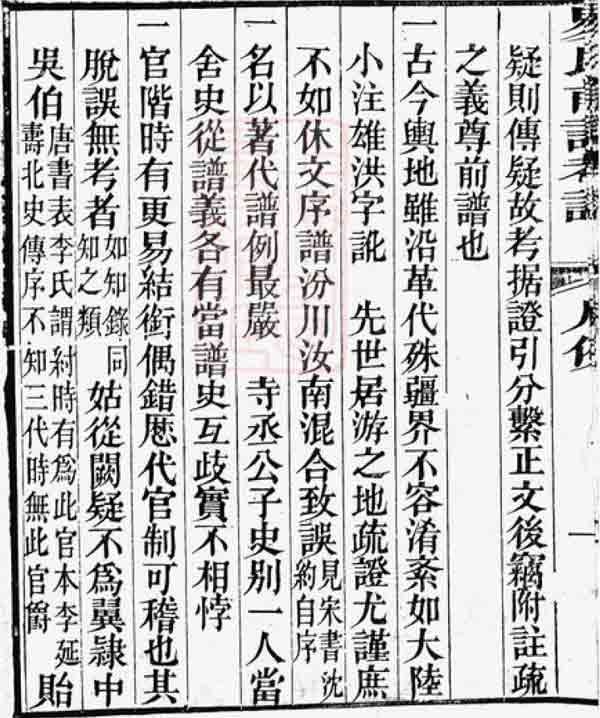 疑則傳疑故考据證引分繫正文後竊附註疏
之義尊前譜也
一古今輿地雖沿革代殊疆界不容淆紊如大陸
小注雄洪字訛　先世居游之地疏證尤謹庶
不如休文序譜汾川汝南混合致誤見宋書沈約自序
一名以著代譜例最嚴　寺丞公子史别一人當
舍史從譜義各有當譜史互歧實不相悖
一官階時有更易結銜偶錯厯代官制可稽也其
脫誤無考者如知錄同知之類姑從闕疑不爲翼隷中
吳伯唐書表李氏謂紂時有爲此官本李延壽北史傳序不知三代時無此官爵貽